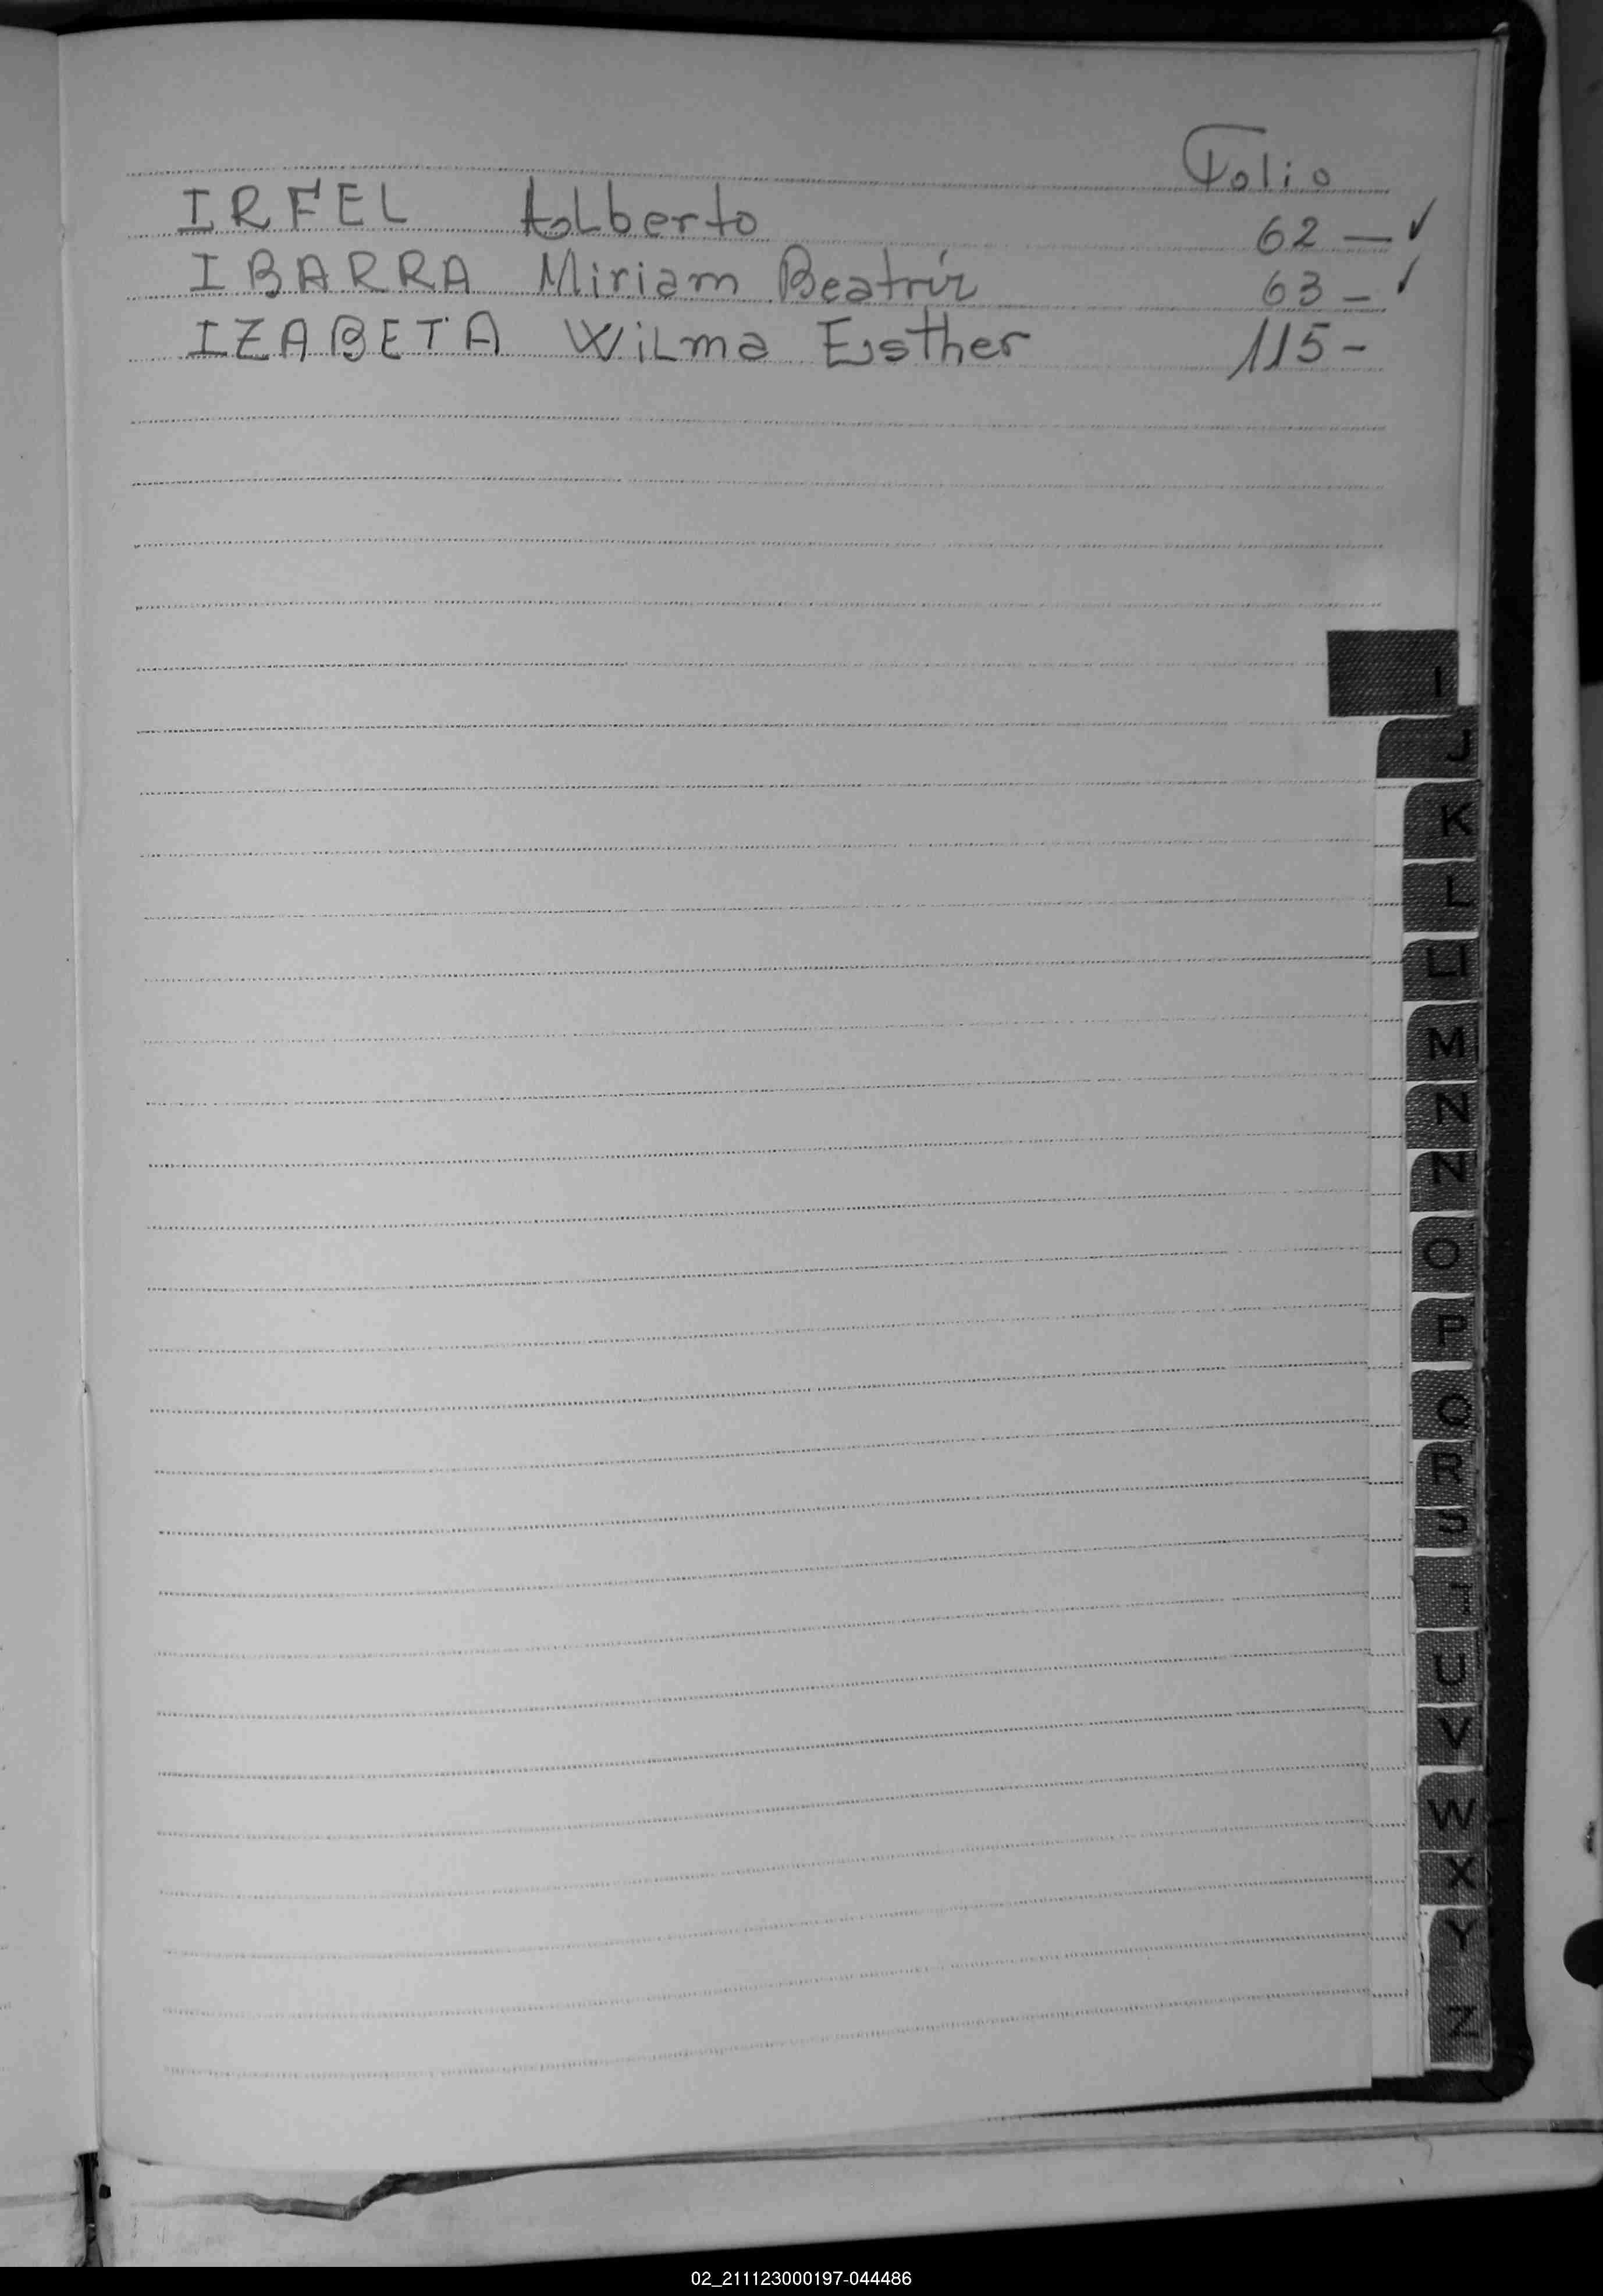 Folio
IRFEL Alberto 62 — ✓
IBARRA Miriam Beatríz 63 - ✓
IZABETA Wilma Esther 115 -
I
J
K
L
Ll
M
N
Ñ
O
P
Q
R
S
T
U
V
W
X
Y
Z
02_211123000197-044486